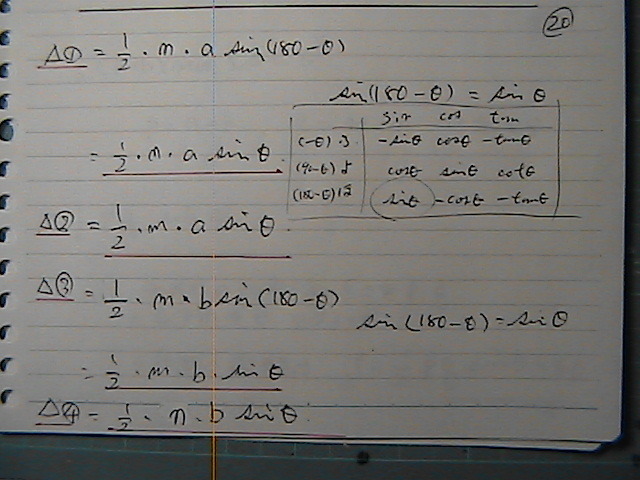 20
△① = 1/2 · n · a sin(180-θ)
sin(180-θ) = sin θ
sin cos tan
= 1/2 · n · a sin θ.
(-θ) -sinθ cosθ -tanθ
(90-θ) cosθ sinθ cotθ
(180-θ) sinθ -cosθ -tanθ
△② = 1/2 · m · a sin θ.
△③ = 1/2 · m · b sin(180-θ)
sin(180-θ) = sin θ
= 1/2 · m · b · sin θ
△④ = 1/2 · n · b sin θ.